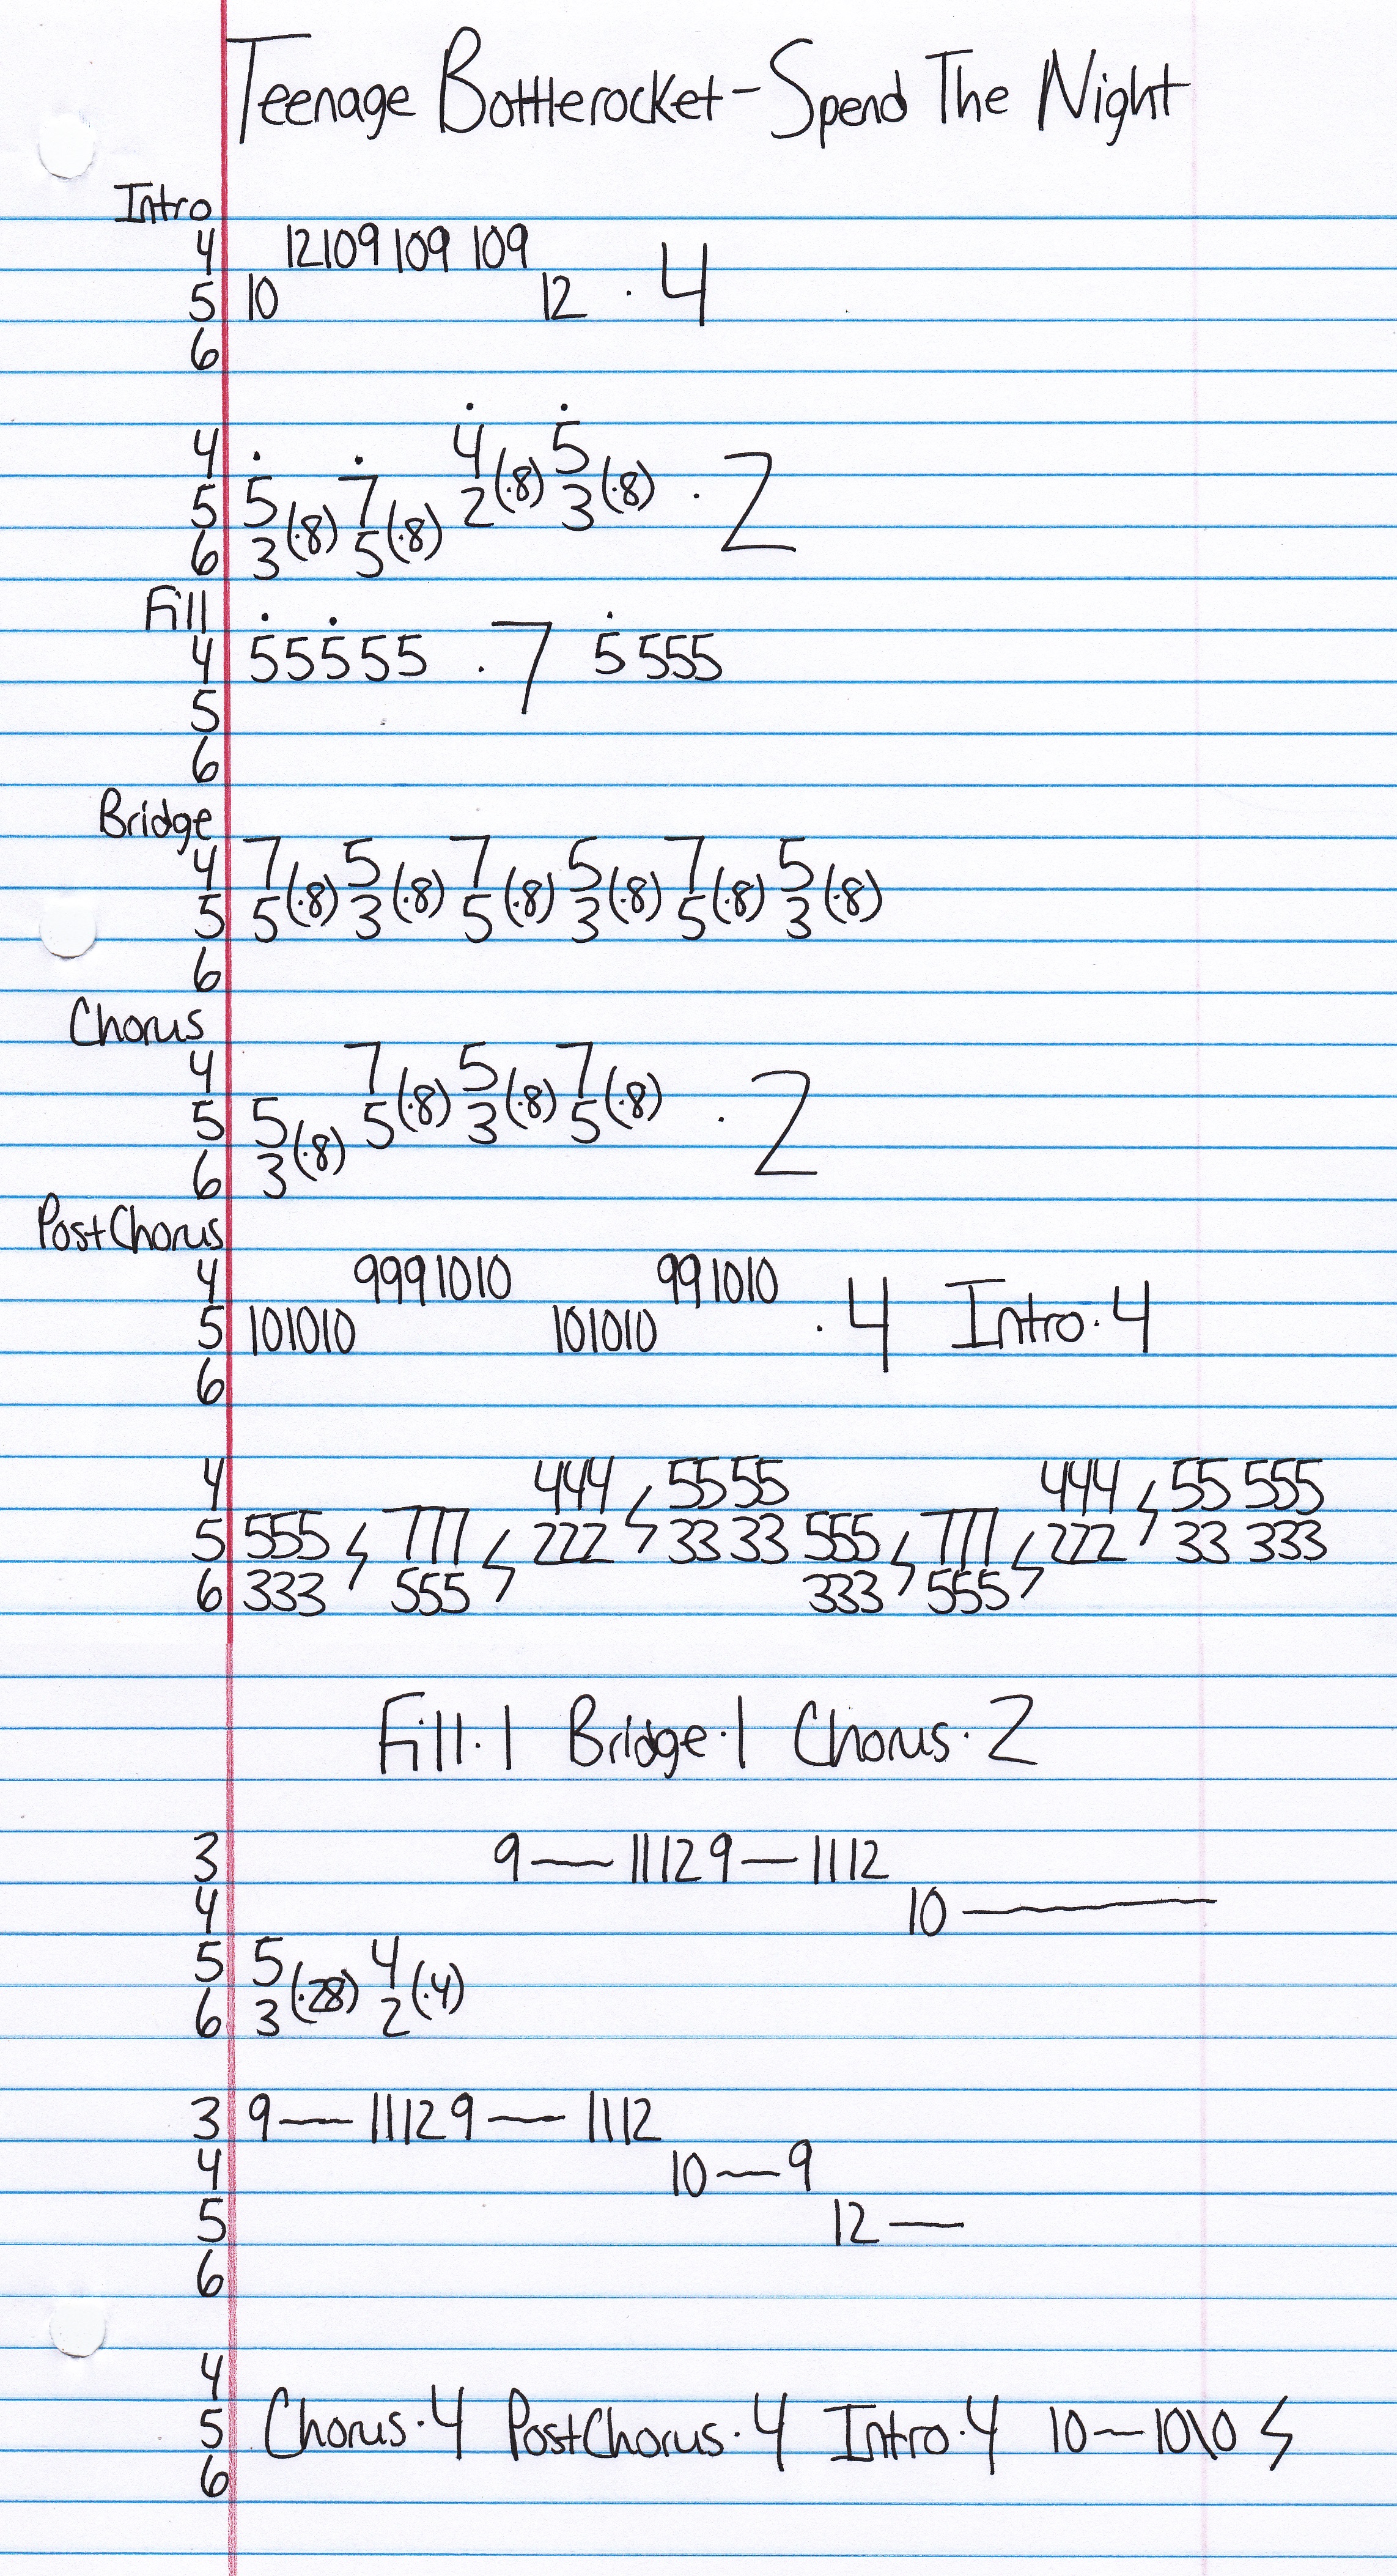 Teenage Bottlerocket - Spend The Night
Intro
4 12109 109 109
5 10 12 · 4
6
4 4 5
5 5 7 2(·8) 3(·8) · 2
6 3(·8) 5(·8)
Fill
4 55555 · 7 5555
5
6
Bridge
4 7 5 7 5 7 5
5 5(·8) 3(·8) 5(·8) 3(·8) 5(·8) 3(·8)
6
Chorus
4 7 5 7
5 5 5(·8) 3(·8) 5(·8) · 2
6 3(·8)
PostChorus
4 9991010 991010
5 101010 101010 · 4 Intro·4
6
4 444 55 55 444 55 555
5 555 777 222 33 33 555 777 222 33 333
6 333 555 333 555
Fill·1 Bridge·1 Chorus·2
3 9— 11129— 1112
4 10—
5 5 4
6 3(·28) 2(·4)
3 9— 11129— 1112
4 10—9
5 12—
6
4
5 Chorus·4 PostChorus·4 Intro·4 10—10\0
6